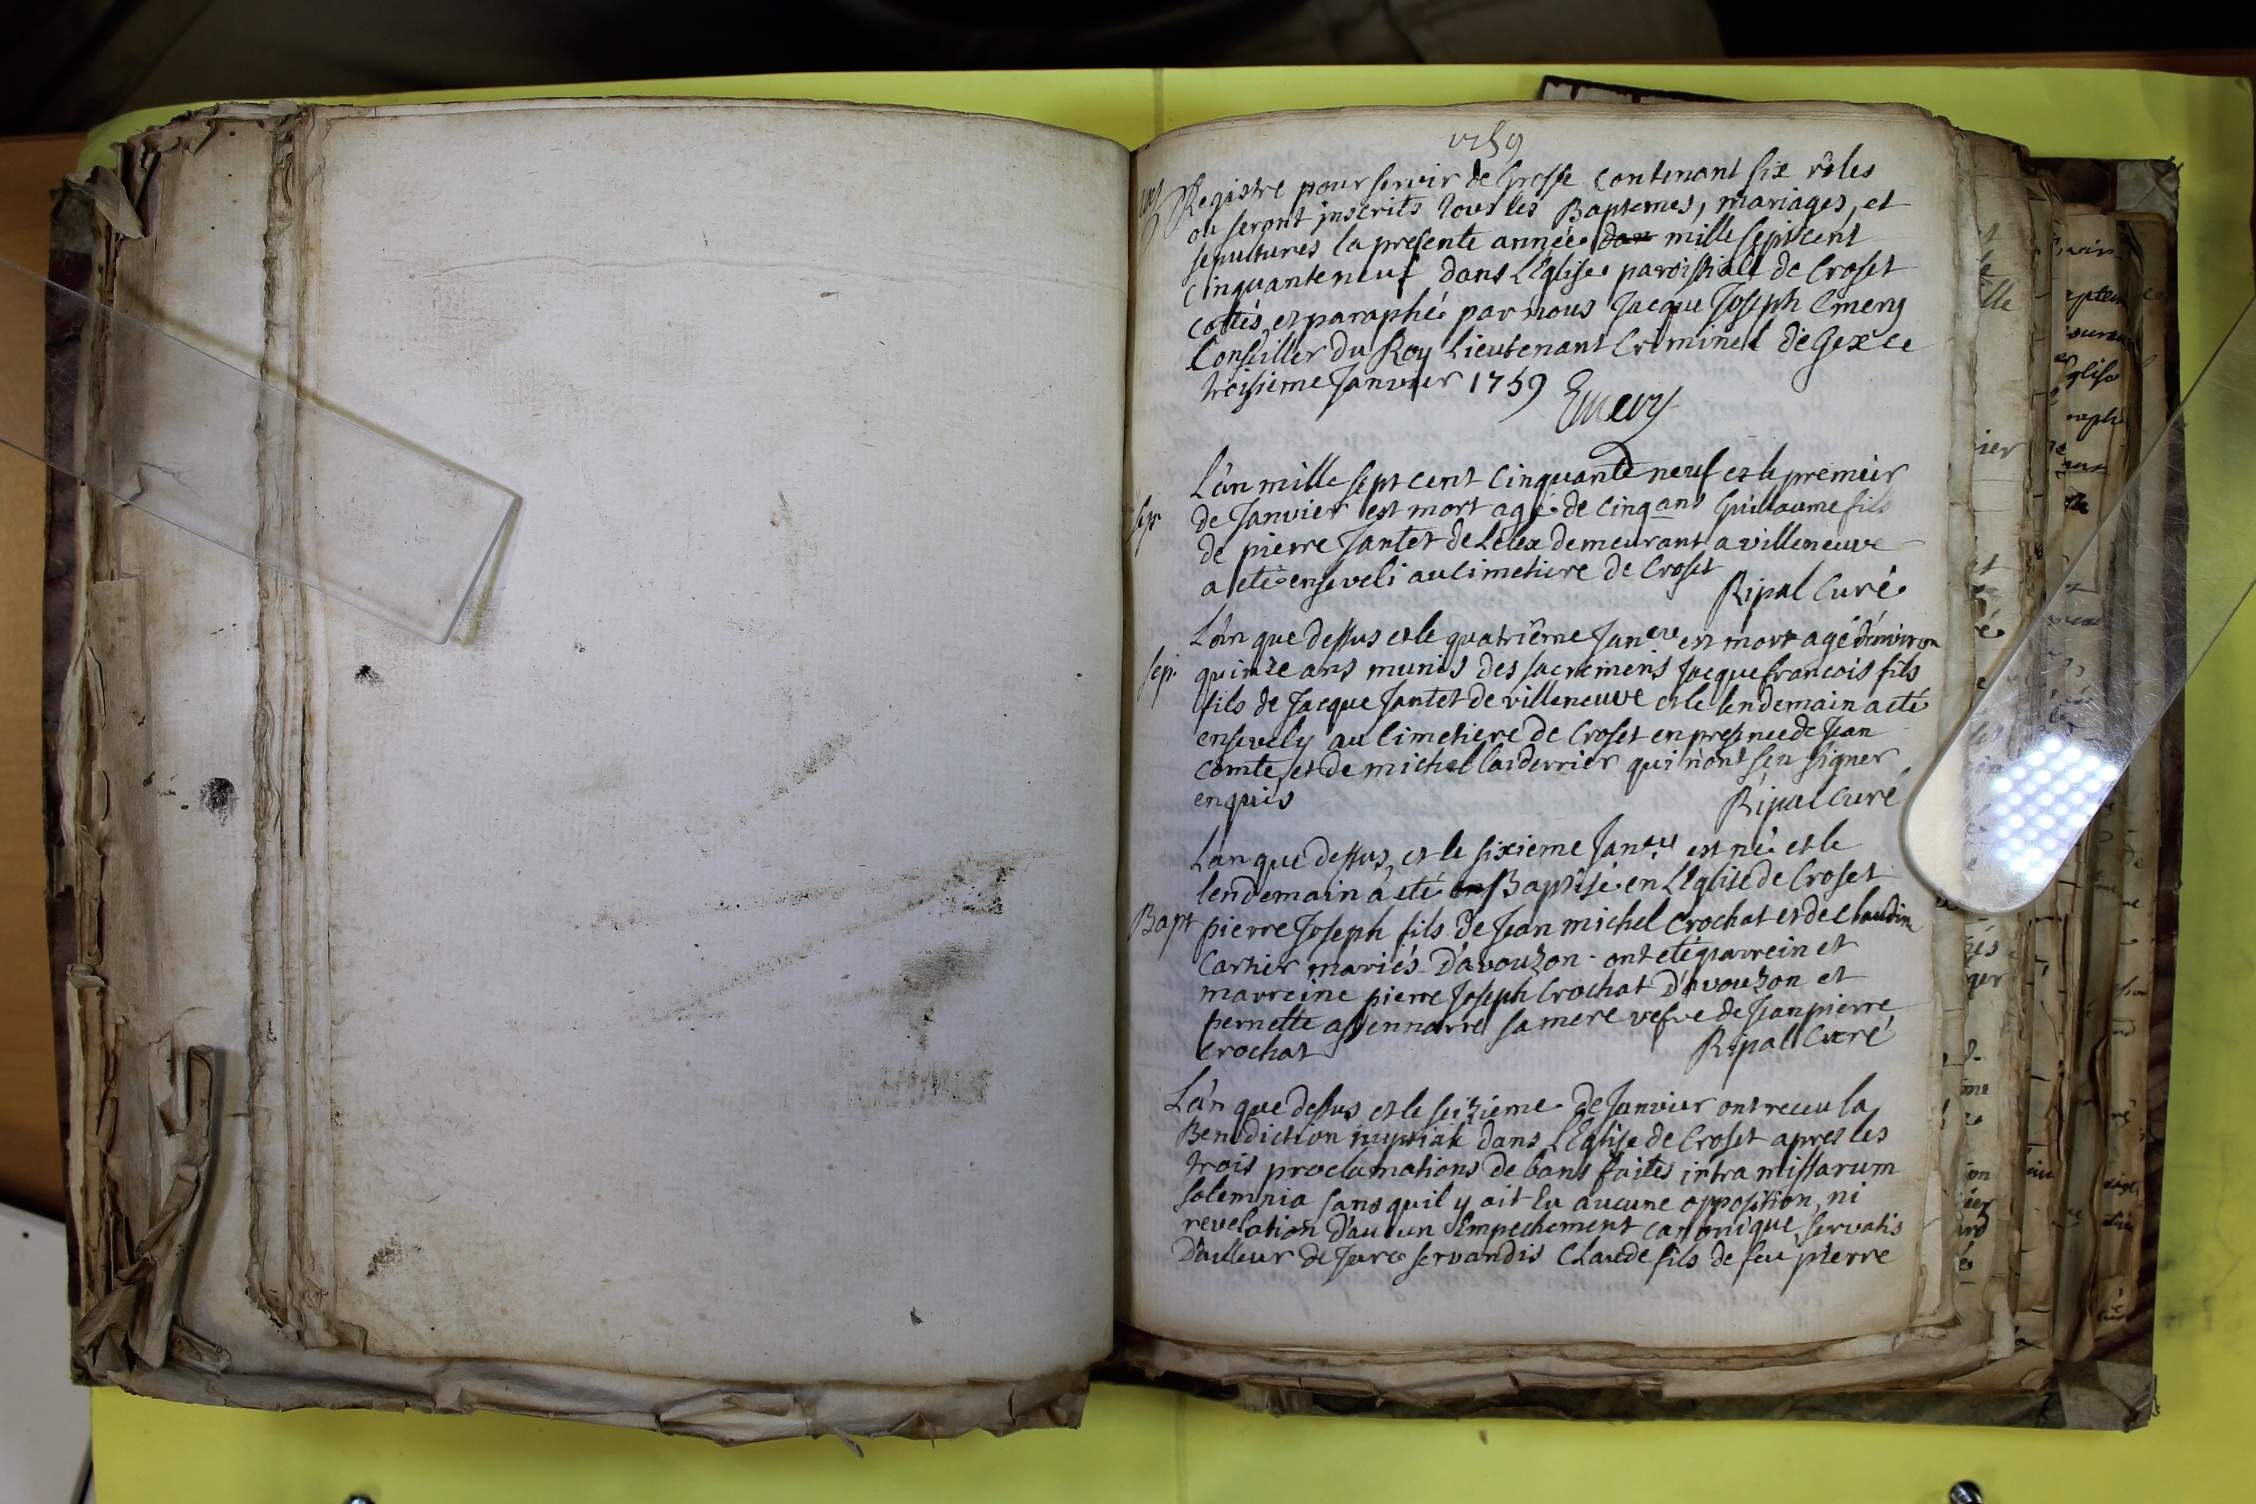 1759
Registre pour servir de Grosse contenant six rôles
ou seront inscrits tous les Baptemes, mariages, et
sepultures la presente année dan mille sept cent
cinquante neuf dans L'Eglise paroissiale de Croset
cottés et paraphé par nous Jacque Joseph Emery
Conseiller du Roy Lieutenant Criminel de Gex ce
troisieme Janvier 1759
Emery
L'an mille sept cent cinquante neuf et le premier
sep. de Janvier est mort agé de cinq ans Guillaume fils
de pierre Jantet de Lelex demeurant a villeneuve
a eté enseveli au cimetiere de Croset
Ripal Curé
L'an que dessus et le quatriême Janer est mort agé d'environ
sep. quinze ans munis des sacremens Jacque francois fils
fils de Jacque Jantet de villeneuve et le lendemain a eté
ensevely au Cimetiere de Croset en presence de Jean
comte et de michel larderrier qui n'ont seu signer
enquis
Ripal Curé
Lan que dessus, et le sixieme Janer est né et le
lendemain a eté en Baptisé en L'Eglise de Croset
Bapt pierre Joseph fils de Jean michel Crochat et de Claudine
Cartier mariés D'avouzon ont eté parrein et
marreine pierre Joseph Crochat D'avouzon et
pernette sa mere vefve de Jean pierre
Crochat
Ripal Curé
L'an que dessus et le seizieme de Janvier ont receu la
Benediction nuptiale dans L'Eglise de Croset apres les
trois proclamations de bans faites intra missarum
solemnia sans quil y ait Eu aucune opposition, ni
revelation D'aucun Empechement canonique servatis
D'ailleur de Jure servandis Claude fils de feu pierre